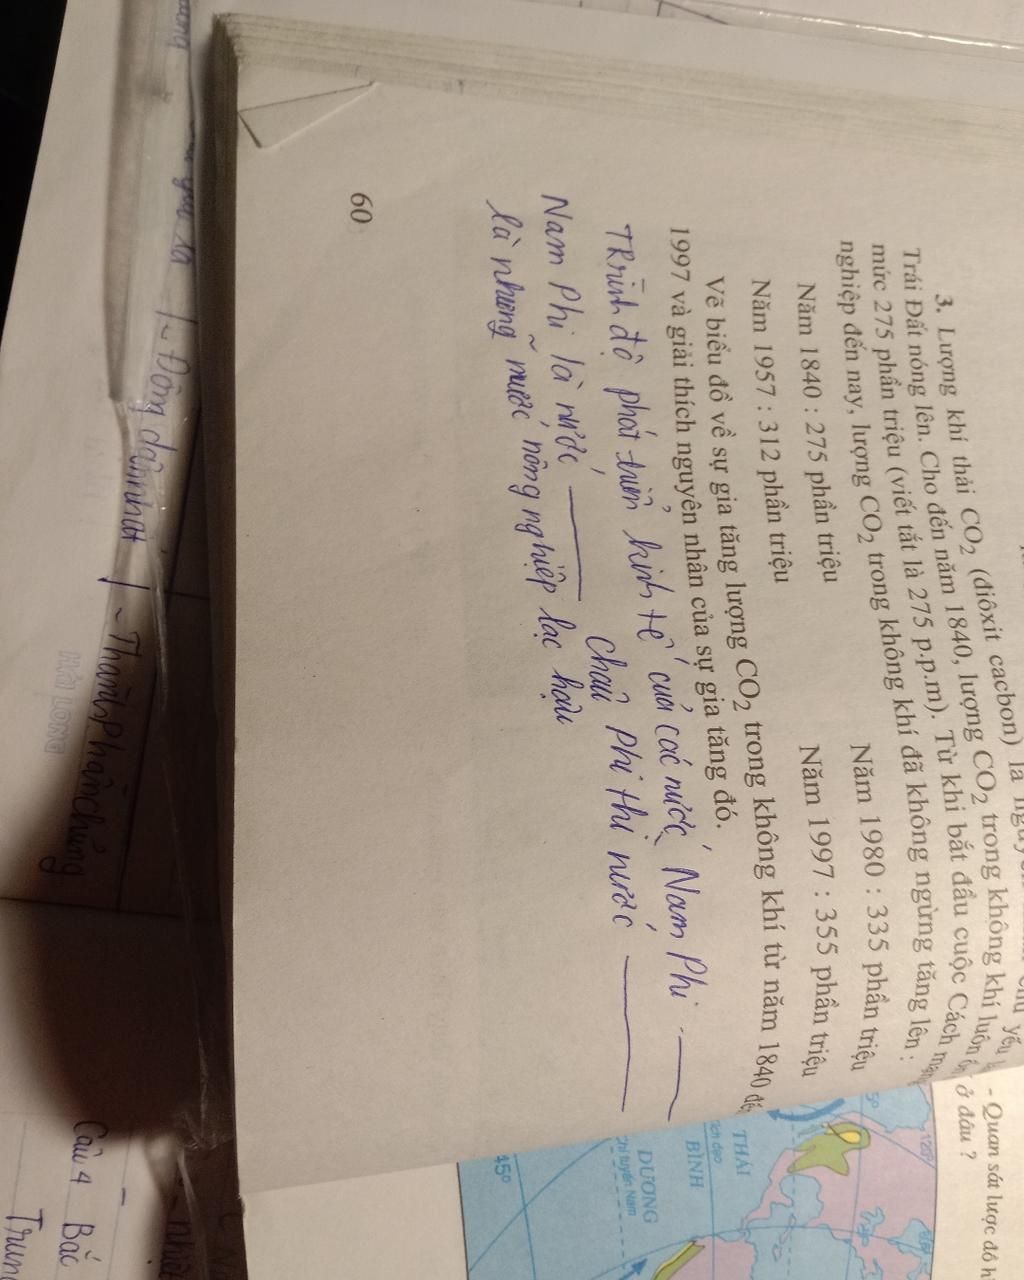 3. Lượng khí thải CO₂ (điôxit cacbon) là
Trái Đất nóng lên. Cho đến năm 1840, lượng CO₂ trong không khí luôn
mức 275 phần triệu (viết tắt là 275 p.p.m). Từ khi bắt đầu cuộc Cách
nghiệp đến nay, lượng CO₂ trong không khí đã không ngừng tăng lên :
Năm 1840 : 275 phần triệu Năm 1980 : 335 phần triệu
Năm 1957 : 312 phần triệu Năm 1997 : 355 phần triệu
Vẽ biểu đồ về sự gia tăng lượng CO₂ trong không khí từ năm 1840
1997 và giải thích nguyên nhân của sự gia tăng đó.
Trình độ phát triển kinh tế của các nước Nam Phi
Nam Phi là nước châu phi thì nước
là những nước nông nghiệp lạc hậu
60
- Quan sát lược đồ
ở đâu ?
120°
THÁI
BÌNH
DƯƠNG
Chí tuyến Nam
45°
~ Đông dân nhất
~ Thành phần chủng
HẢI LONG
Câu 4 Bắc